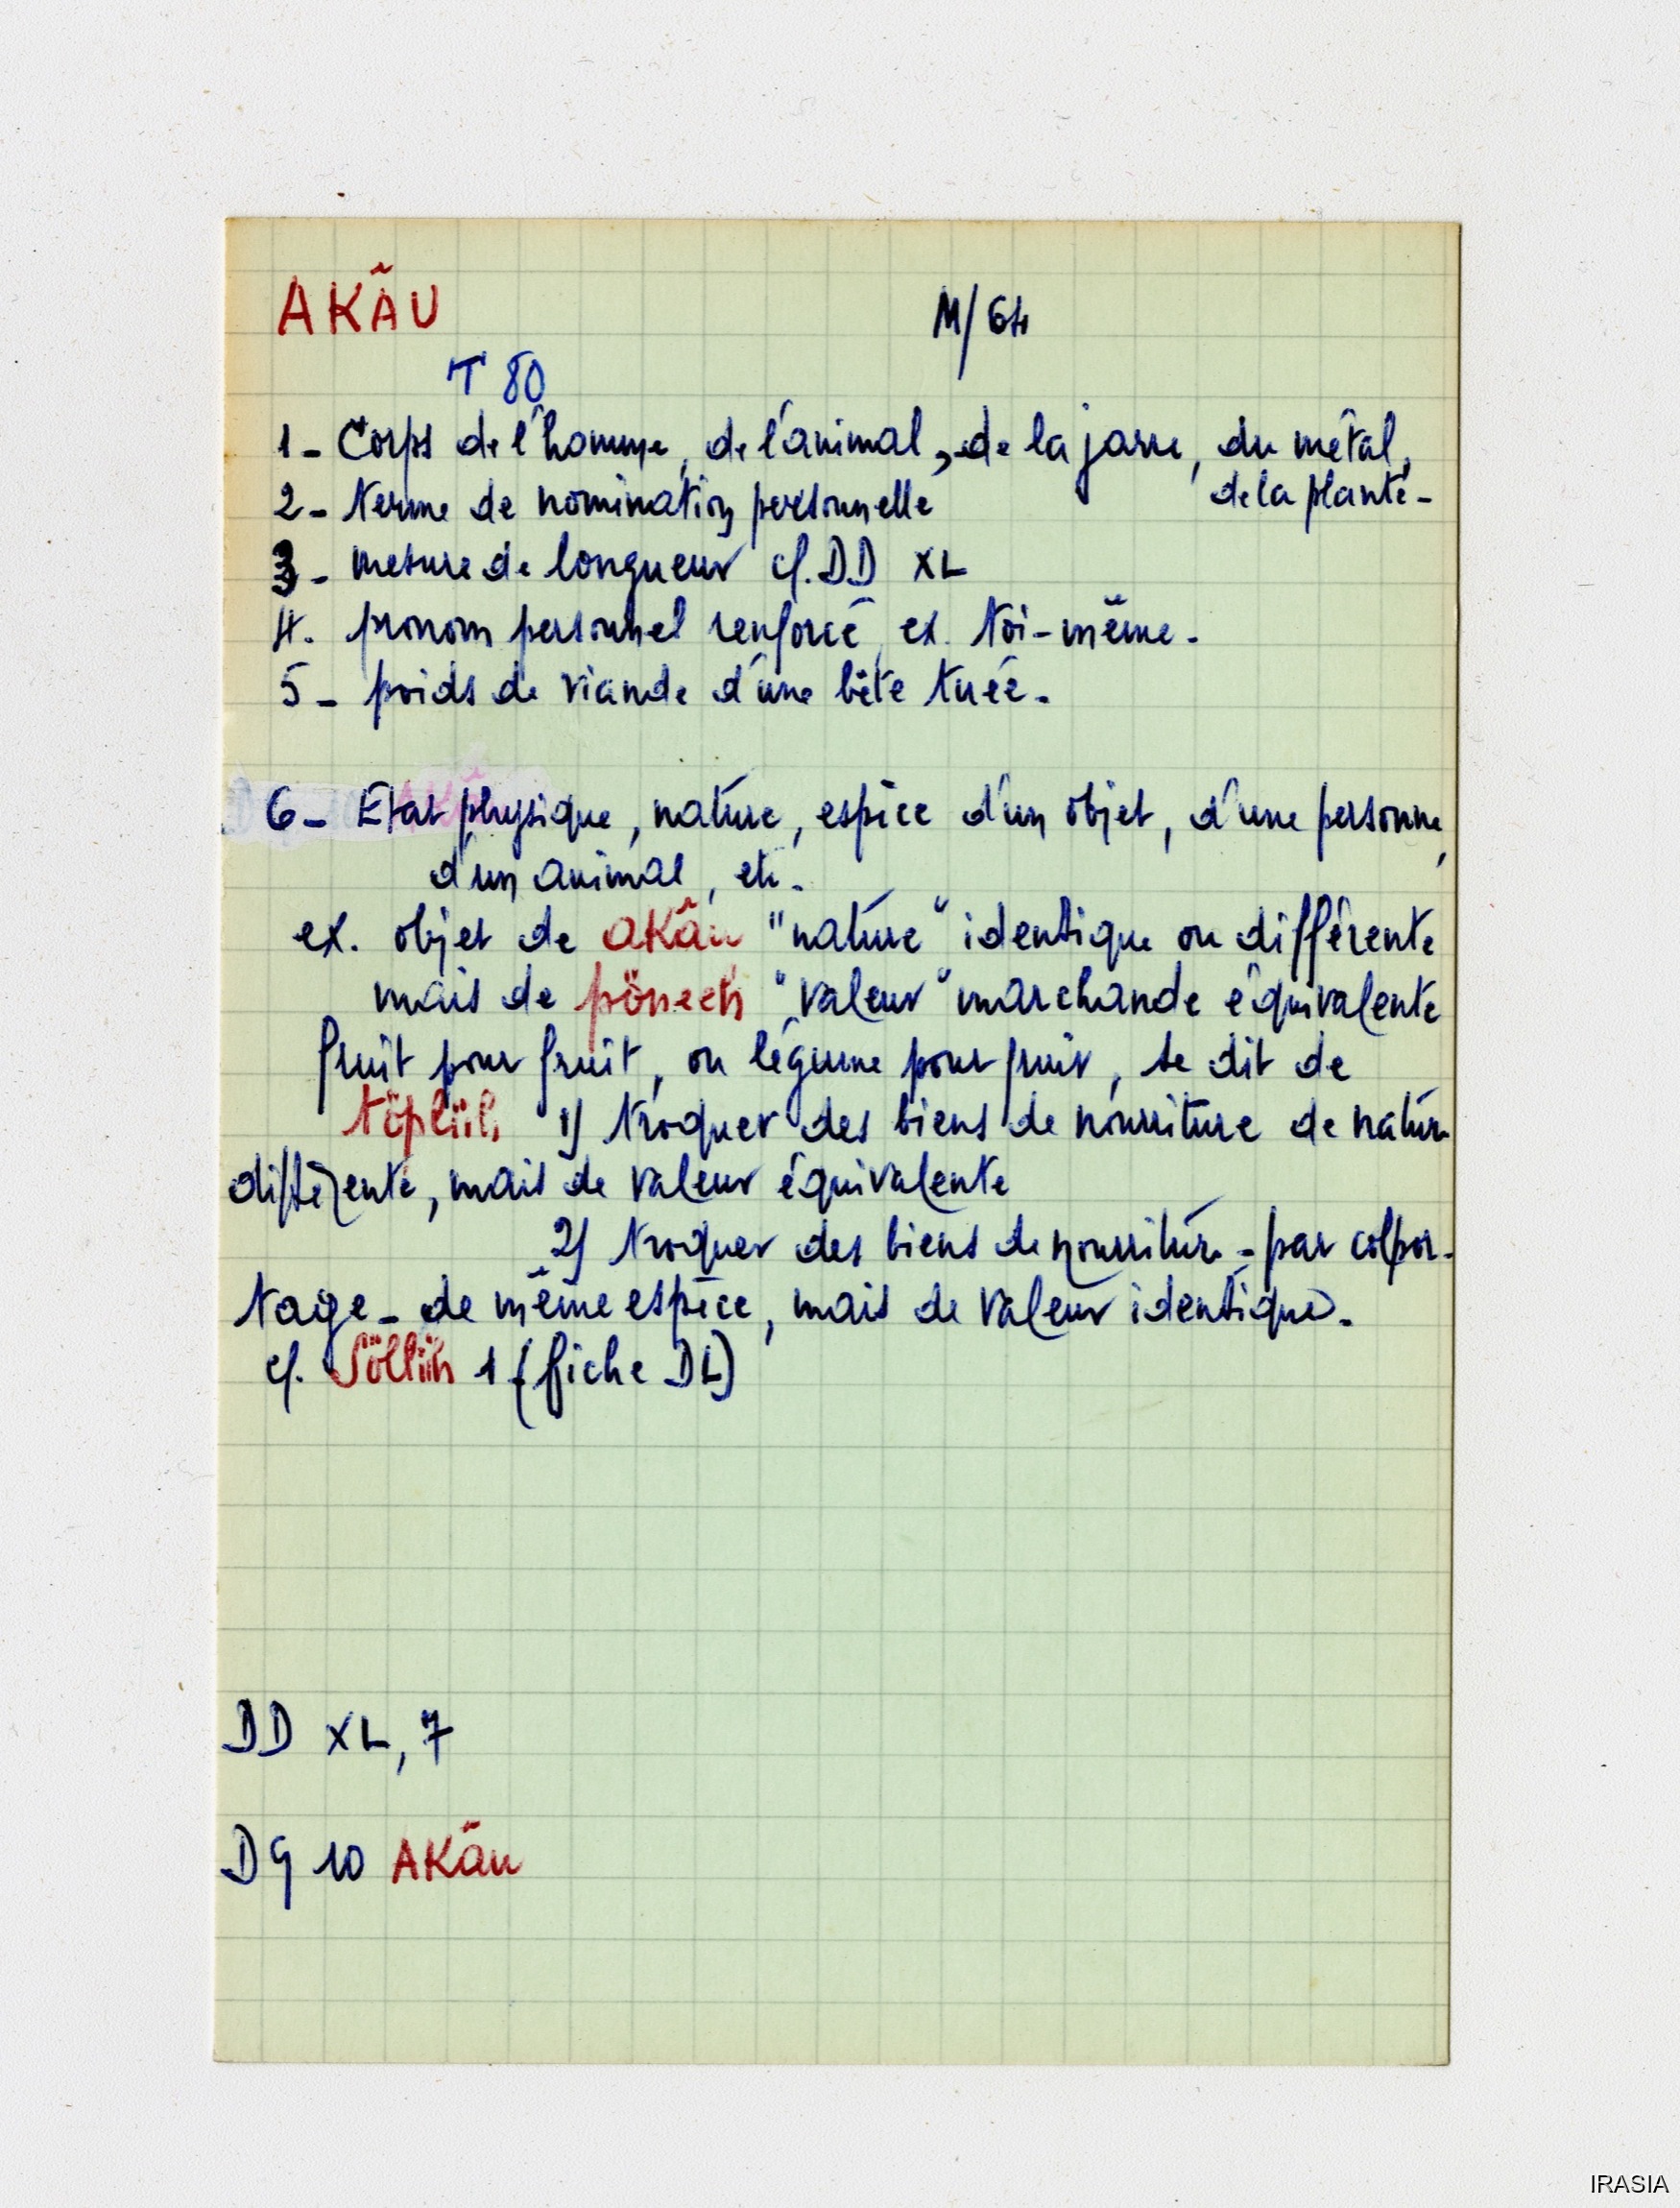 AKÂU M/64
T 80
1- Corps de l'homme, de l'animal, de la jarre, du métal,
de la plante-
2- terme de nomination personnelle
3- mesure de longueur cf. DD XL
4. pronom personnel renforcé, ex. toi-même-
5- poids de viande d'une bête tuée-
6- Etat physique, nature, espèce d'un objet, d'une personne,
d'un animal, etc.
ex. objet de akâu "nature" identique ou différente
mais de pönech "valeur" marchande équivalente
fruit pour fruit, ou légume pour fruit, se dit de
töplüh 1) troquer des biens de nourriture de nature
différente, mais de valeur équivalente
2) troquer des biens de nourriture - par colpor-
tage - de même espèce, mais de valeur identique.
cf. Söllüh 1 (fiche DL)
DD XL, 7
DG 10 AKâu
IRASIA